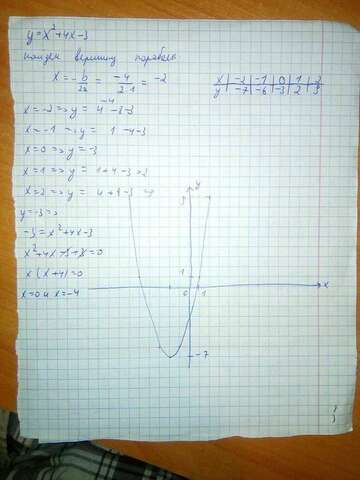 y=x²+4x-3
найдем вершину параболы
x=-b/2a = -4/2·1 = -2
x -2 -1 0 1 2
y -7 -6 -3 2 9
x=-2 => y= 4-8-3
x=-1 => y= 1-4-3
x=0 => y=-3
x=1 => y= 1+4-3=2
x=2 => y= 4+8-3=9
y=-3 =>
-3=x²+4x-3
x²+4x-3+3=0
x(x+4)=0
x=0 и x=-4
y
9
1
0 1
x
-7